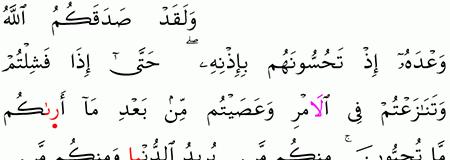 وَلَقَدْ صَدَقَكُمُ اللَّهُ
وَعْدَهُۥٓ إِذْ تَحُسُّونَهُم بِإِذْنِهِۦۖ حَتَّىٰٓ إِذَا فَشِلْتُمْ
وَتَنَٰزَعْتُمْ فِى الَامْرِ وَعَصَيْتُم مِّنۢ بَعْدِ مَآ أَرىٰكُم
مَّا تُحِبُّونَۚ مِنكُم مَّن يُرِيدُ الدُّنْيا وَمِنكُم مَّن